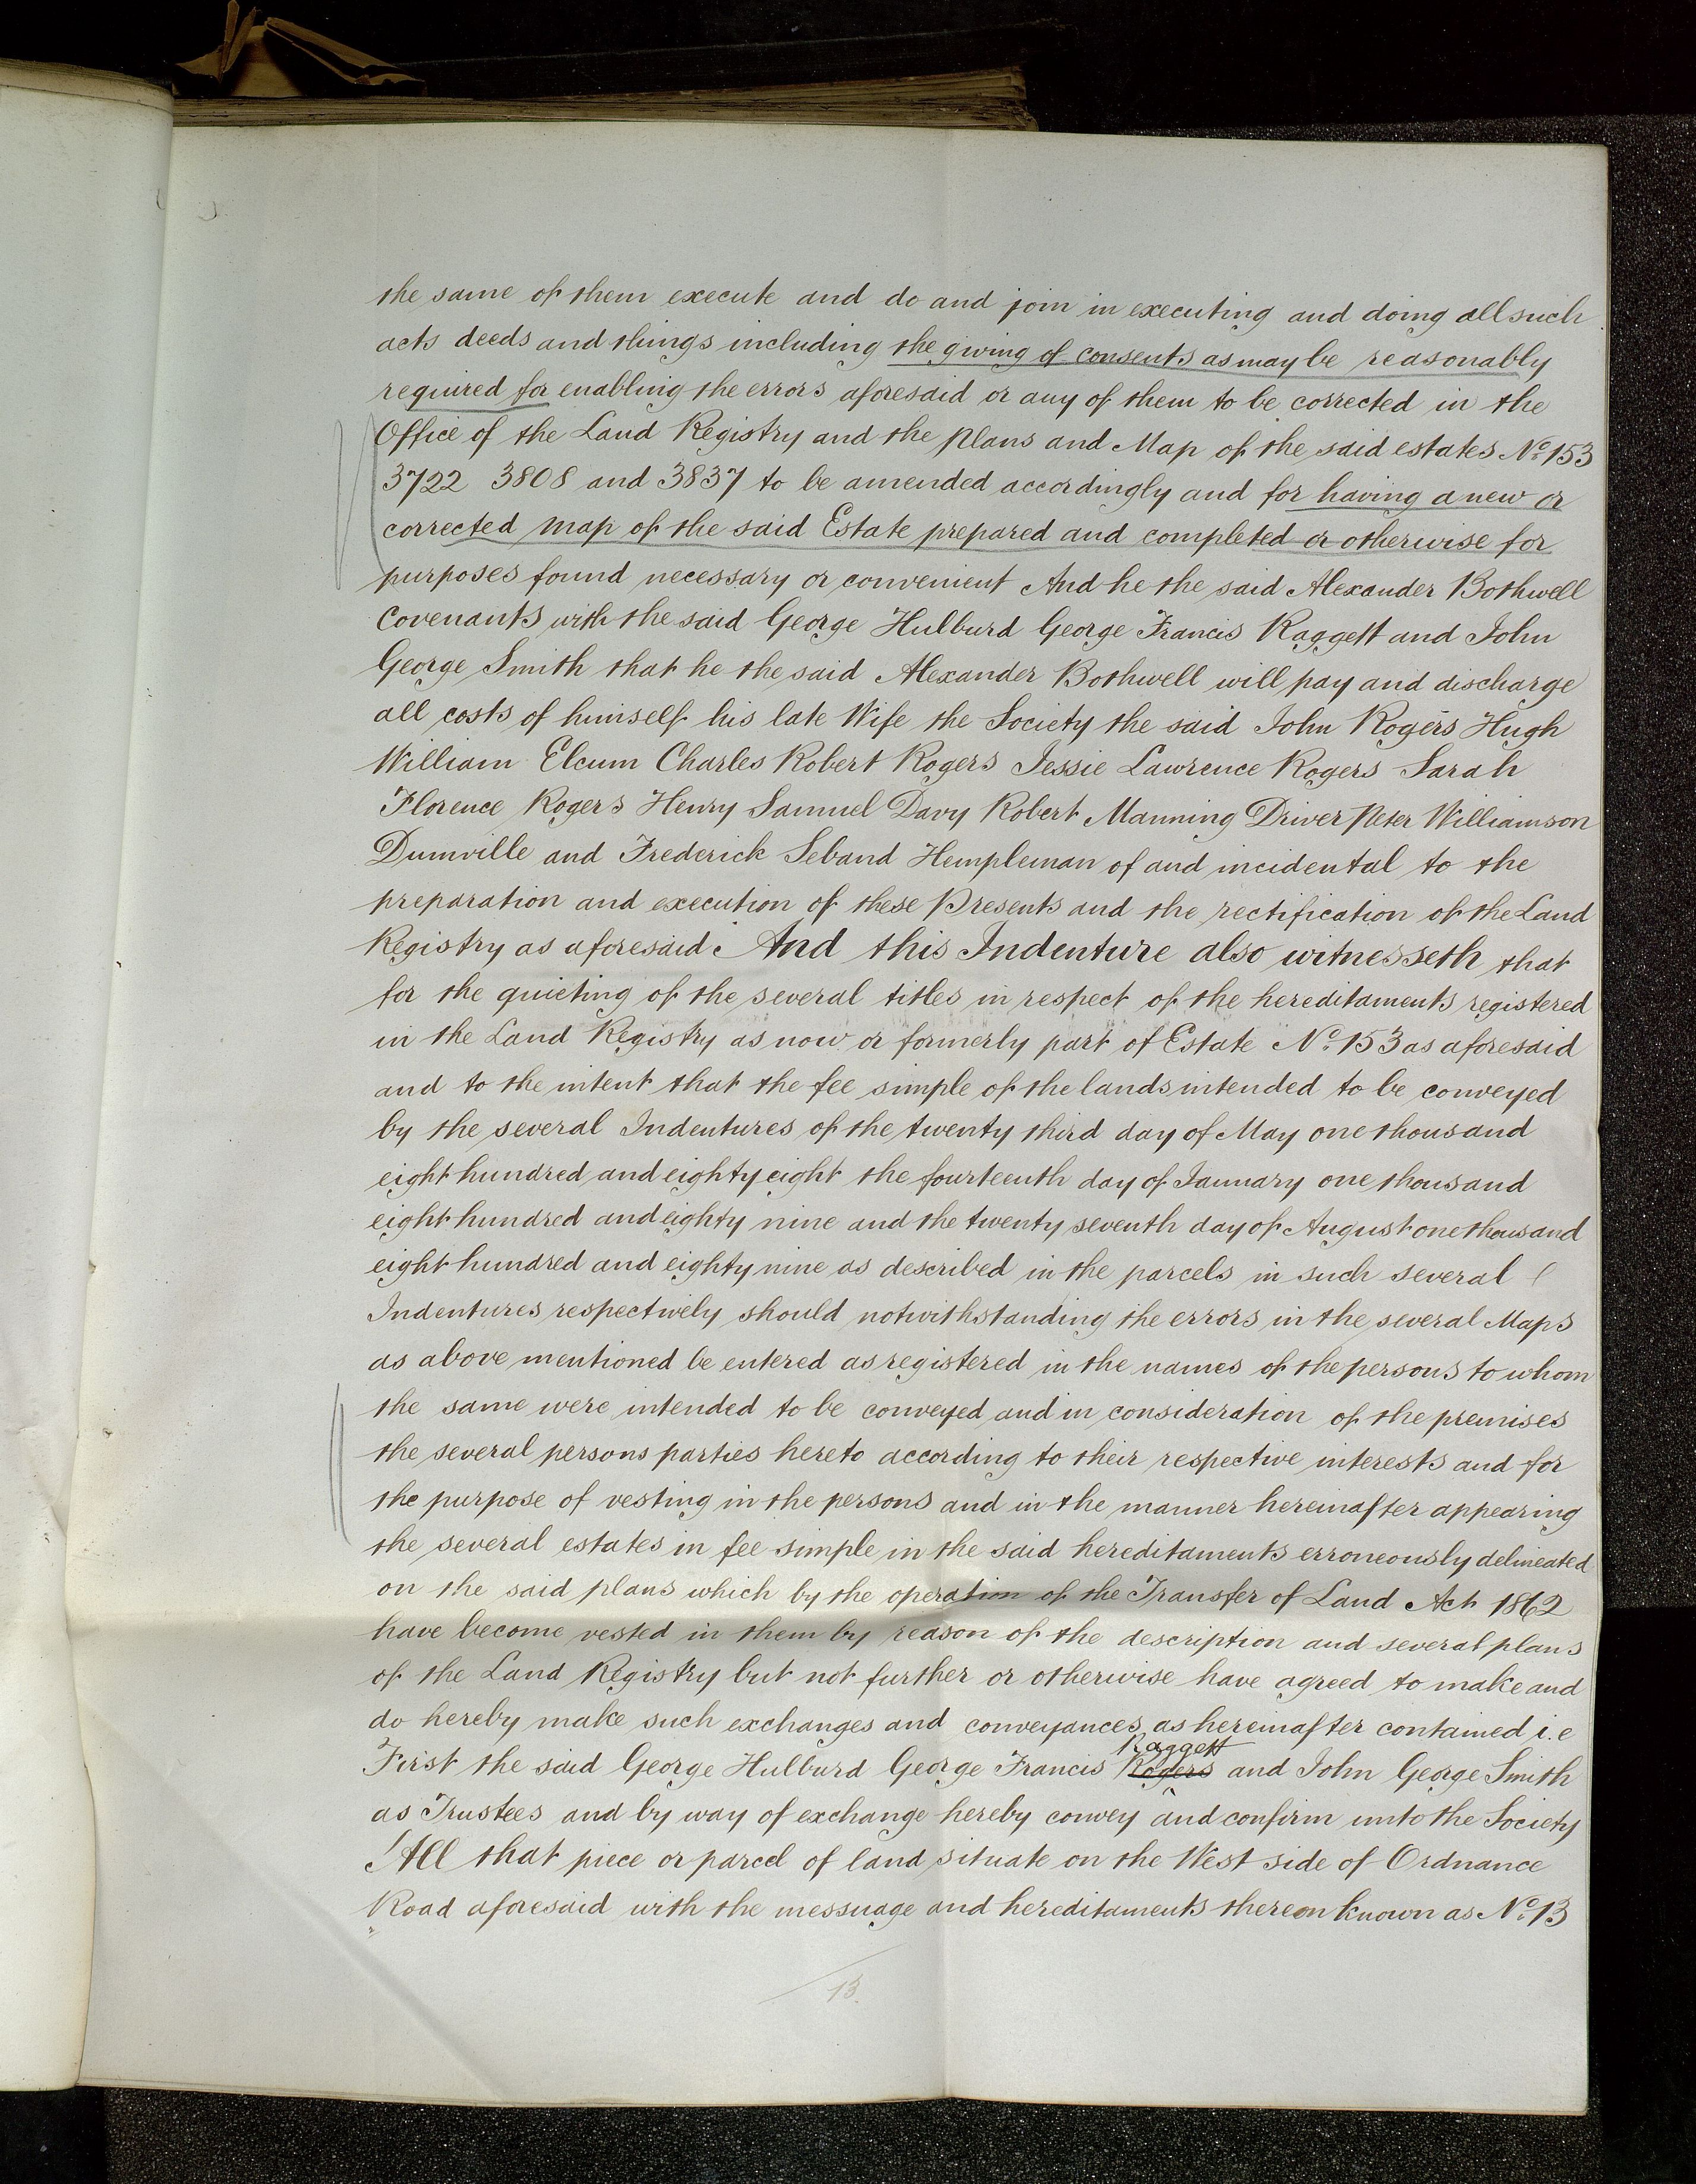 the same of them execute and do and join in executing and doing all such
acts deeds and things including the giving of consents as may be reasonably
required for enabling the errors aforesaid or any of them to be corrected in the
Office of the Land Registry and the plans and Map of the said estates No. 153
3722 3808 and 3837 to be amended accordingly and for having a new or
corrected map of the said Estate prepared and completed or otherwise for
purposes found necessary or convenient And he the said Alexander Bothwell
Covenants with the said George Hulburd George Francis Raggett and John
George Smith that he the said Alexander Bothwell will pay and discharge
all costs of himself his late Wife the Society the said John Rogers Hugh
William Elcum Charles Robert Rogers Jessie Lawrence Rogers Sarah
Florence Rogers Henry Samuel Davy Robert Manning Driver Peter Williamson
Dumville and Frederick Seband Hempleman of and incidental to the
preparation and execution of these Presents and the rectification of the Land
Registry as aforesaid And this Indenture also witnesseth that
for the quieting of the several titles in respect of the hereditaments registered
in the Land Registry as now or formerly part of Estate No. 153 as aforesaid
and to the intent that the fee simple of the lands intended to be conveyed
by the several Indentures of the twenty third day of May one thousand
eight hundred and eighty eight the fourteenth day of January one thousand
eight hundred and eighty nine and the twenty seventh day of August one thousand
eight hundred and eighty nine as described in the parcels in such several
Indentures respectively should notwithstanding the errors in the several Maps
as above mentioned be entered as registered in the names of the persons to whom
the same were intended to be conveyed and in consideration of the premises
the several persons parties hereto according to their respective interests and for
the purpose of vesting in the persons and in the manner hereinafter appearing
the several estates in fee simple in the said hereditaments erroneously delineated
on the said plans which by the operation of the Transfer of Land Act 1862
have become vested in them by reason of the description and several plans
of the Land Registry but not further or otherwise have agreed to make and
do hereby make such exchanges and conveyances as hereinafter contained i.e
Raggett
First the said George Hulburd George Francis Rogers and John George Smith
as Trustees and by way of exchange hereby convey and confirm unto the Society
All that piece or parcel of land situate on the West side of Ordnance
Road aforesaid with the messuage and hereditaments thereon known as No. 13
13